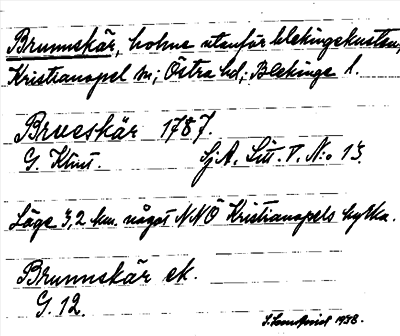 Brunnskär, holme utanför blekingekusten,
Kristianopel sn; Östra hd; Blekinge l.
Brueskär 1787.
G. Klint. SjA. Litt. V. No 13.
Läge 3,2 km. något NNÖ Kristianopels kyrka.
Brunnskär ek.
G. 12.
1938.